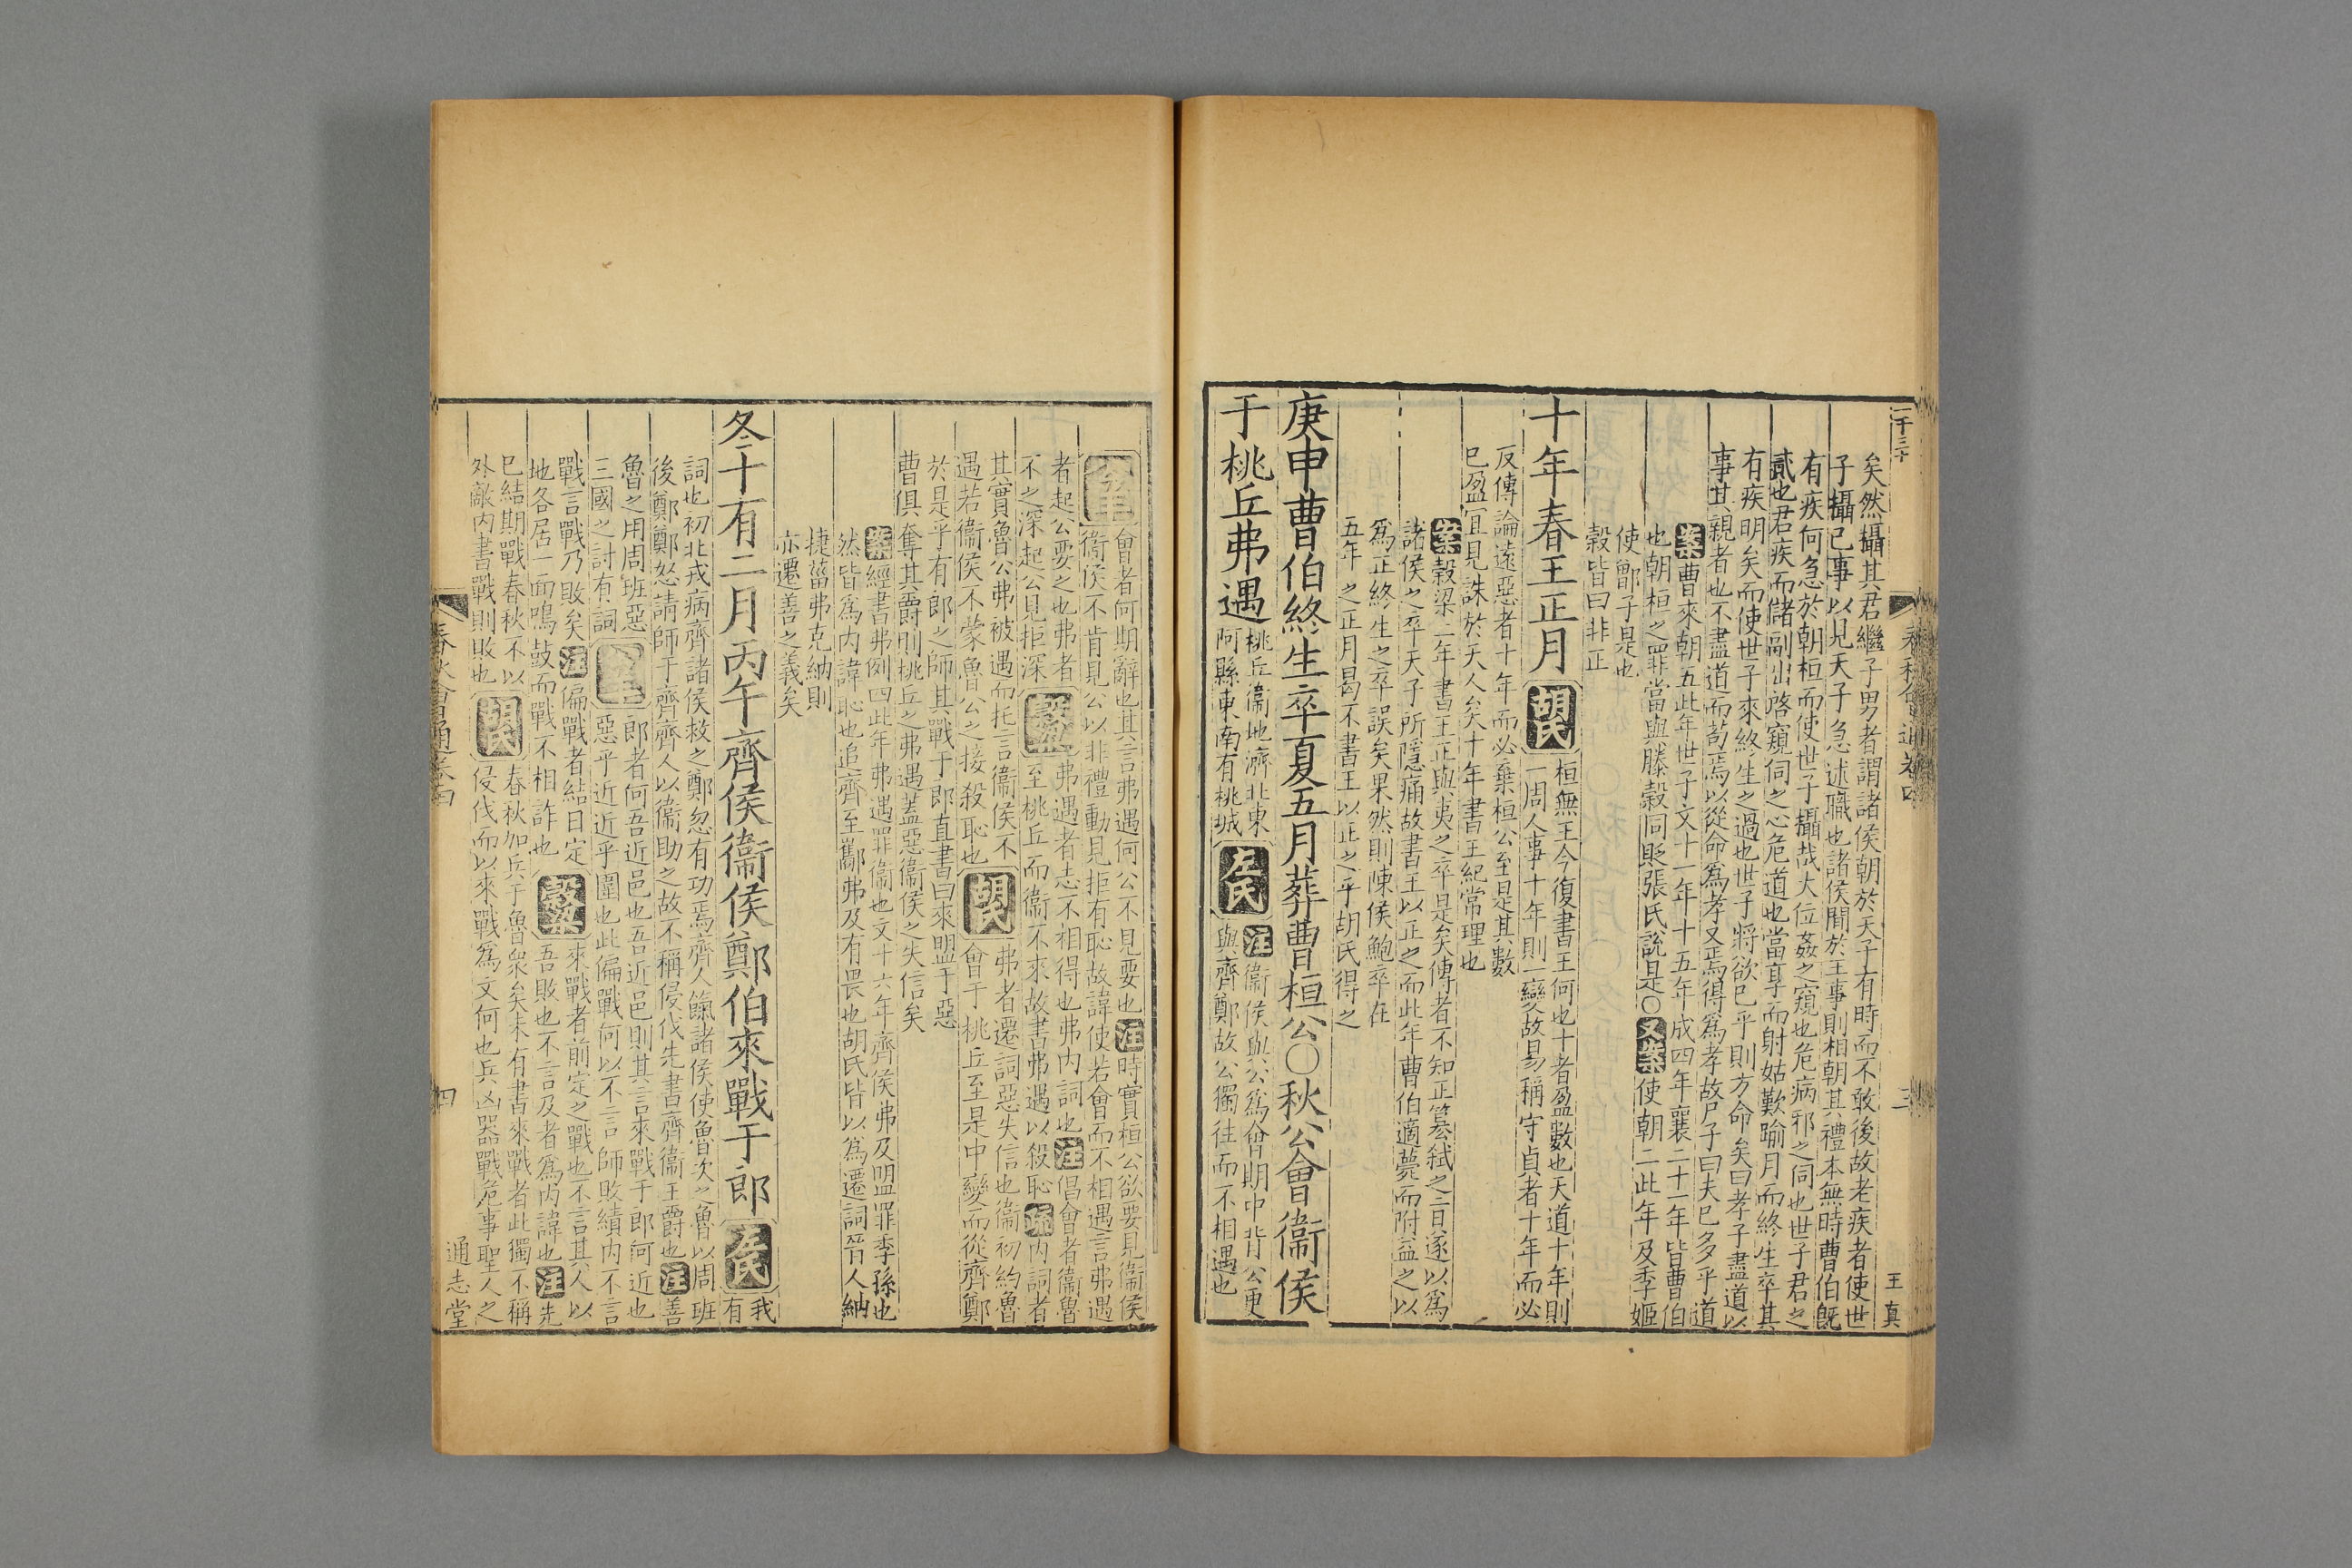 二千三十
春秋會通卷四
三
王真
矣然攝其君繼子男者謂諸侯朝於天子有時而不敢後故老疾者使世
子攝已事以見天子急述職也諸侯閒於王事則相朝其禮本無時曹伯旣
有疾何急於朝桓而使世子攝哉大位姦之窺也危病邪之伺也世子君之
貳也君疾而儲副出啓窺伺之心危道也當享而射姑歎踰月而終生卒其
有疾明矣而使世子來終生之過也世子將欲已乎則方命矣曰孝子盡道以
事其親者也不盡道而苟焉以從命爲孝又焉得爲孝故尸子曰夫已多乎道
案曹來朝五此年世子文十一年十五年成四年襄二十一年皆曹伯
也朝桓之罪當與滕穀同貶張氏說是○又案使朝二此年及季姬
使鄫子是也
穀皆曰非正
十年春王正月胡氏桓無王今復書王何也十者盈數也天道十年則
一周人事十年則一變故易稱守貞者十年而必
反傳論遠惡者十年而必棄桓公至是其數
已盈宜見誅於天人矣十年書王紀常理也
案穀梁二年書王正與夷之卒是矣傳者不知正簒弑之二日遂以爲
諸侯之卒天子所隱痛故書王以正之而此年曹伯適薨而附益之以
爲正終生之卒誤矣果然則陳侯鮑卒在
五年之正月曷不書王以正之乎胡氏得之
庚申曹伯終生卒夏五月葬曹桓公○秋公會衞侯
于桃丘弗遇桃丘衞地濟北東
阿縣東南有桃城左氏注衞侯與公爲會期中背公更
與齊鄭故公獨往而不相遇也
公羊會者何期辭也其言弗遇何公不見要也注時實桓公欲要見衞侯
衞侯不肯見公以非禮動見拒有恥故諱使若會而不相遇言弗遇
者起公要之也弗者穀梁弗遇者志不相得也弗內詞也注倡會者衞魯
不之深起公見拒深至桃丘而衞不來故書弗遇以殺恥疏內詞者
其實魯公弗被遇而托言衞侯不胡氏弗者遷詞惡失信也衞初約魯
遇若衞侯不蒙魯公之接殺恥也會于桃丘至是中變而從齊鄭
於是乎有郎之師其戰于郎直書曰來盟于惡
曹俱奪其爵則桃丘之弗遇蓋惡衞侯之失信矣
案經書弗例四此年弗遇罪衞也文十六年齊侯弗及盟罪季孫也
然皆爲内諱恥也追齊至酅弗及有畏也胡氏皆以爲遷詞晉人納
捷菑弗克納則
亦遷善之義矣
冬十有二月丙午齊侯衞侯鄭伯來戰于郎左氏我
有
詞也初北戎病齊諸侯救之鄭忽有功焉齊人餼諸侯使魯次之魯以周班
後鄭鄭怒請師于齊齊人以衞助之故不稱侵伐先書齊衞王爵也注善
魯之用周班惡公羊郎者何吾近邑也吾近邑則其言來戰于郎何近也
三國之討有詞惡乎近近乎圍也此偏戰何以不言師敗績内不言
戰言戰乃敗矣注偏戰者結日定穀梁來戰者前定之戰也不言其人以
地各居一面鳴鼓而戰不相詐也吾敗也不言及者爲内諱也注先
已結期戰春秋不以胡氏春秋加兵于魯衆矣未有書來戰者此獨不稱
外敵内書戰則敗也侵伐而以來戰爲文何也兵凶器戰危事聖人之
春秋會通卷四
四
通志堂